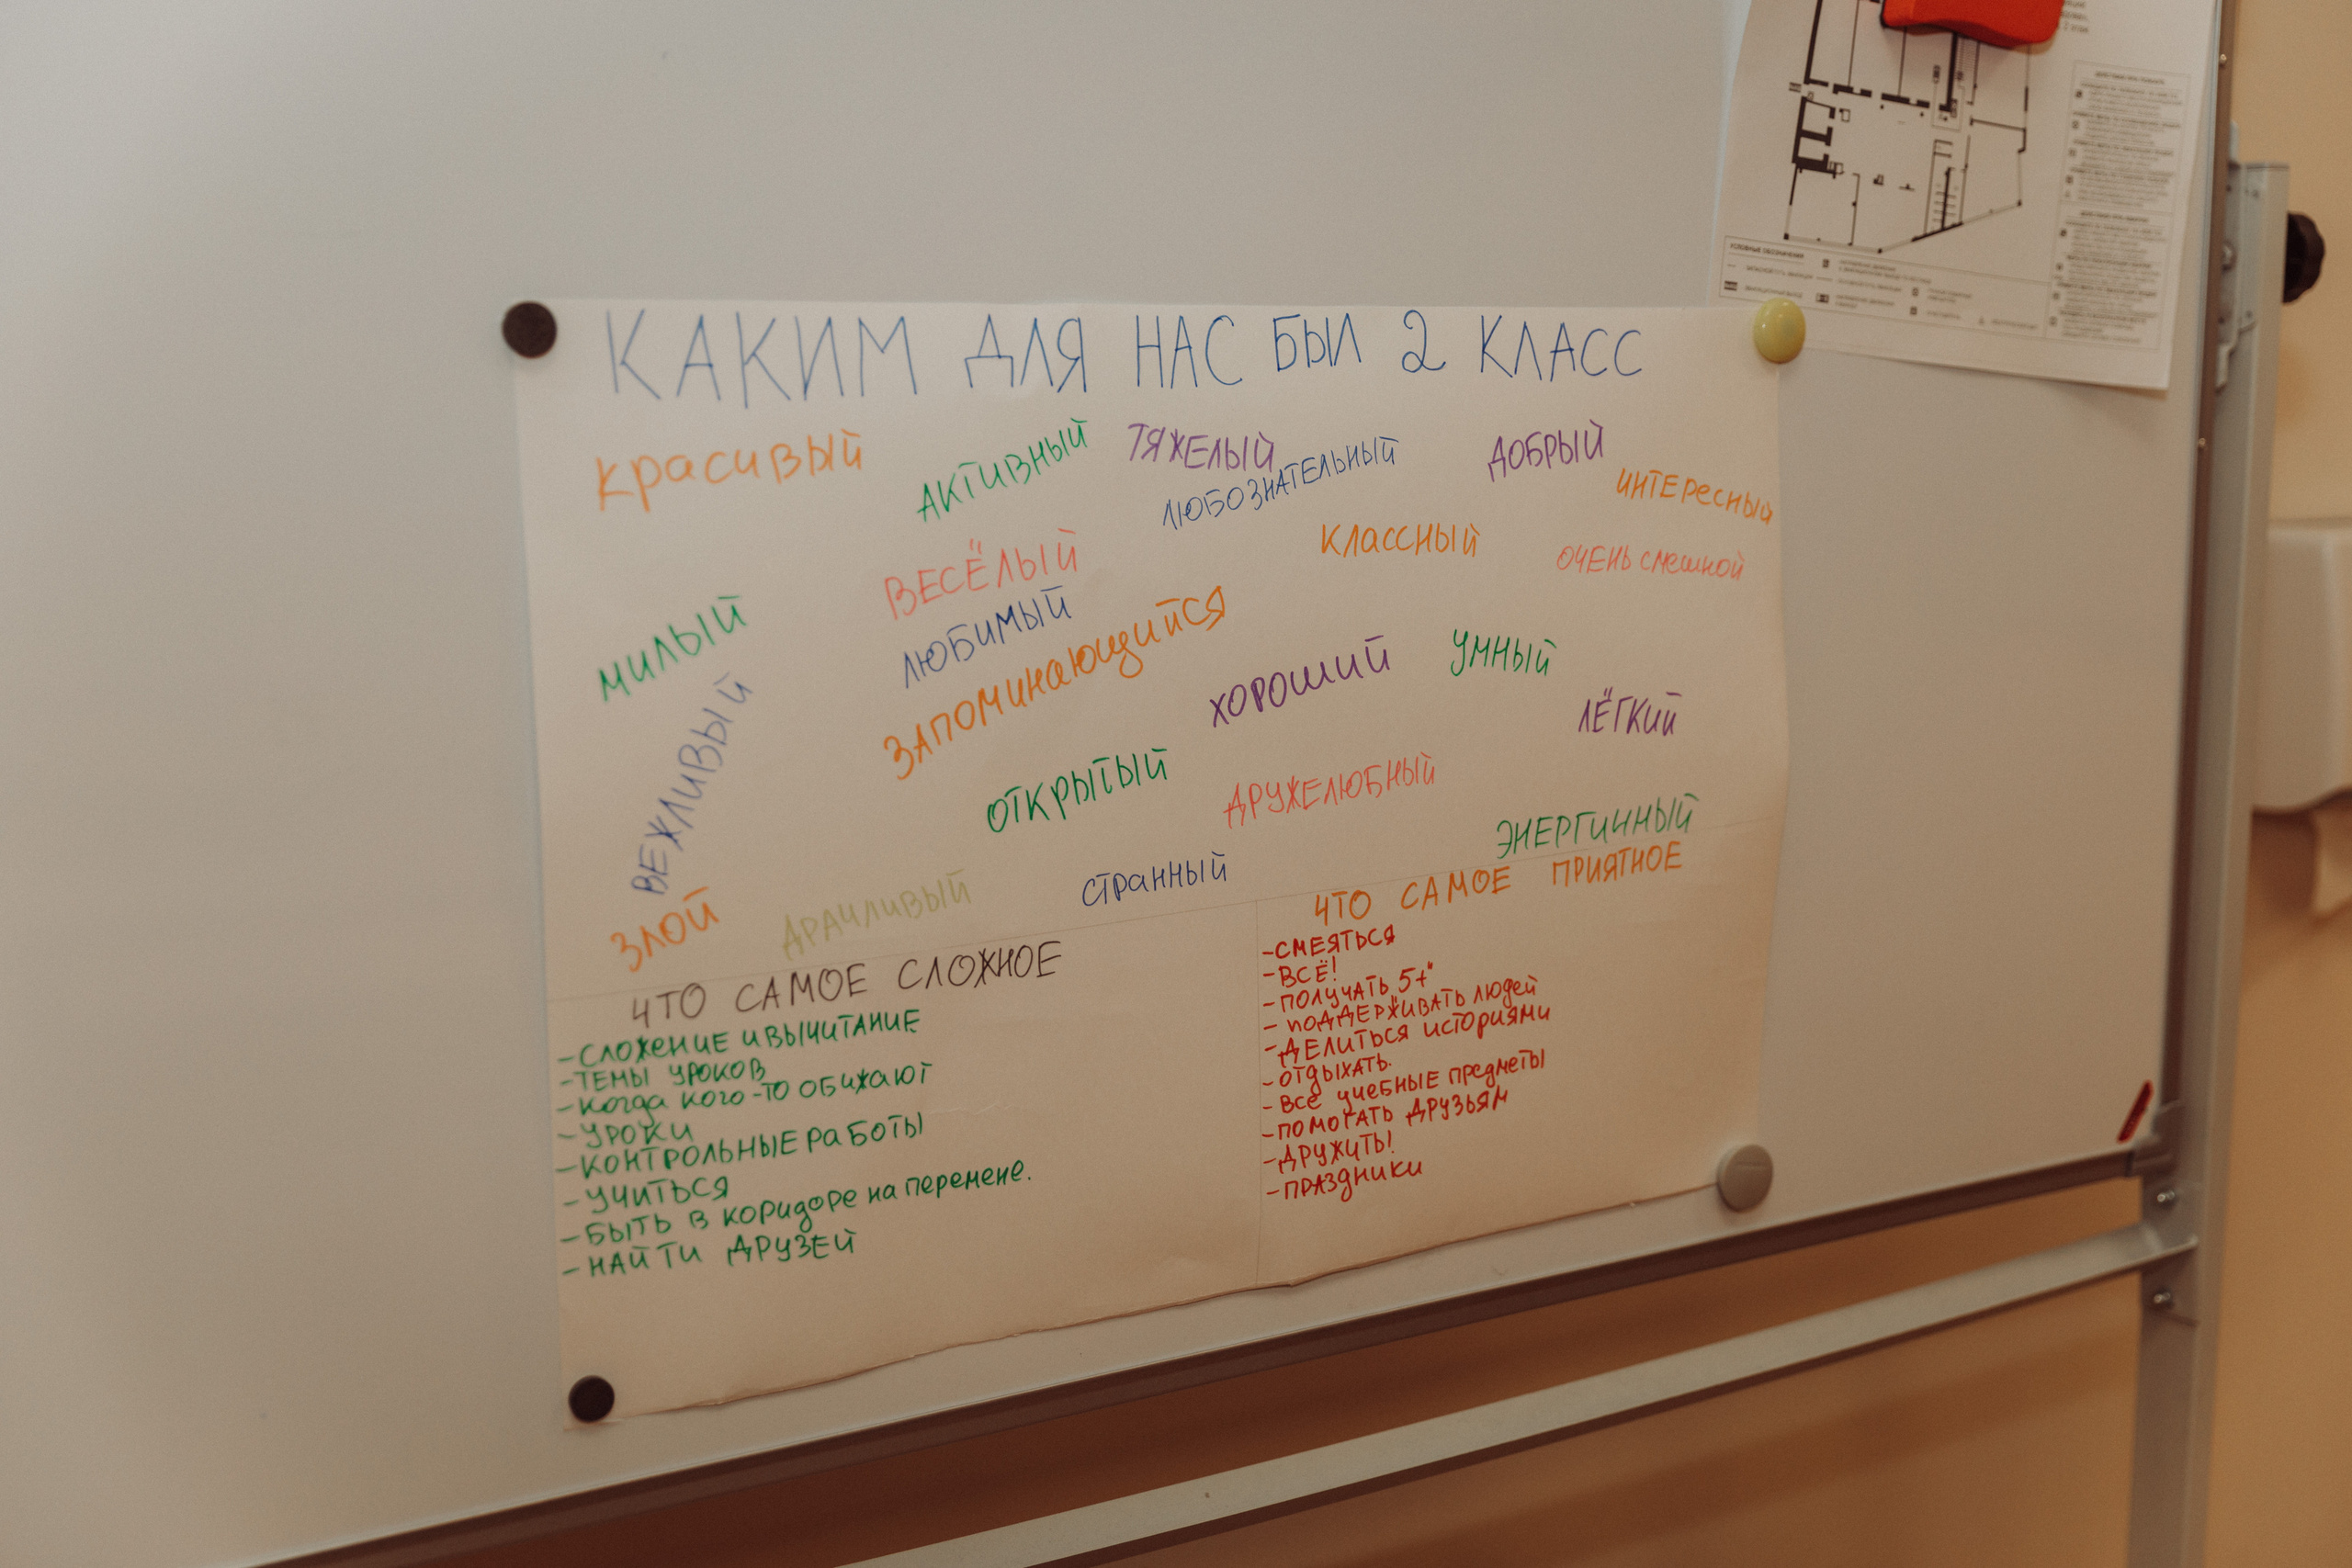 КАКИМ ДЛЯ НАС БЫЛ 2 КЛАСС
красивый
АКТИВНЫЙ
ТЯЖЕЛЫЙ
ЛЮБОЗНАТЕЛЬНЫЙ
ДОБРЫЙ
ИНТЕРесный
ВЕСЁЛЫЙ
КЛАССНЫЙ
ОЧЕНЬ смешной
МИЛЫЙ
ЛЮБИМЫЙ
ЗАПОМИНающийся
ХОРОШИЙ
УМНЫЙ
ЛЁГКИЙ
ВЕЖЛИВЫЙ
ОТКРЫТЫЙ
ДРУЖЕЛЮБНЫЙ
ЭНЕРГИЧНЫЙ
ЗЛОЙ
ДРАЧЛИВЫЙ
СТРАННЫЙ
ЧТО САМОЕ СЛОЖНОЕ
-СЛОЖЕНИЕ И ВЫЧИТАНИЕ
-ТЕМЫ УРОКОВ
-Когда кого-то ОБИЖАЮТ
-УРОКИ
-КОНТРОЛЬНЫЕ РаБОТЫ
-УЧИТЬСЯ
-БЫТЬ В КОРИДОРЕ на перемене.
-НАЙТИ ДРУЗЕЙ
ЧТО САМОЕ ПРИЯТНОЕ
-СМЕЯТЬСЯ
-ВСЁ!
-ПОЛУЧАТЬ 5+"
-ПОДДЕРЖИВАТЬ ЛЮДЕЙ
-ДЕЛИТЬСЯ ИСТОРИЯМИ
-ОТДЫХАТЬ.
-ВСЕ УЧЕБНЫЕ ПРЕДМЕТЫ
-ПОМОГАТЬ ДРУЗЬЯМ
-ДРУЖИТЬ!
-ПРАЗДНИКИ
УСЛОВНЫЕ ОБОЗНАЧЕНИЯ